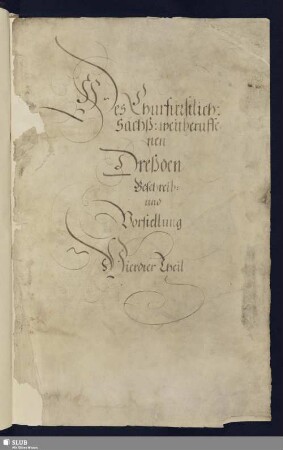 Des Churfürstlich:
Sächß: weitberuffe
nen
Dreßden
Beschreib-
und
Vorstellung
Vierdter Theil
SLUB
Wir führen Wissen.